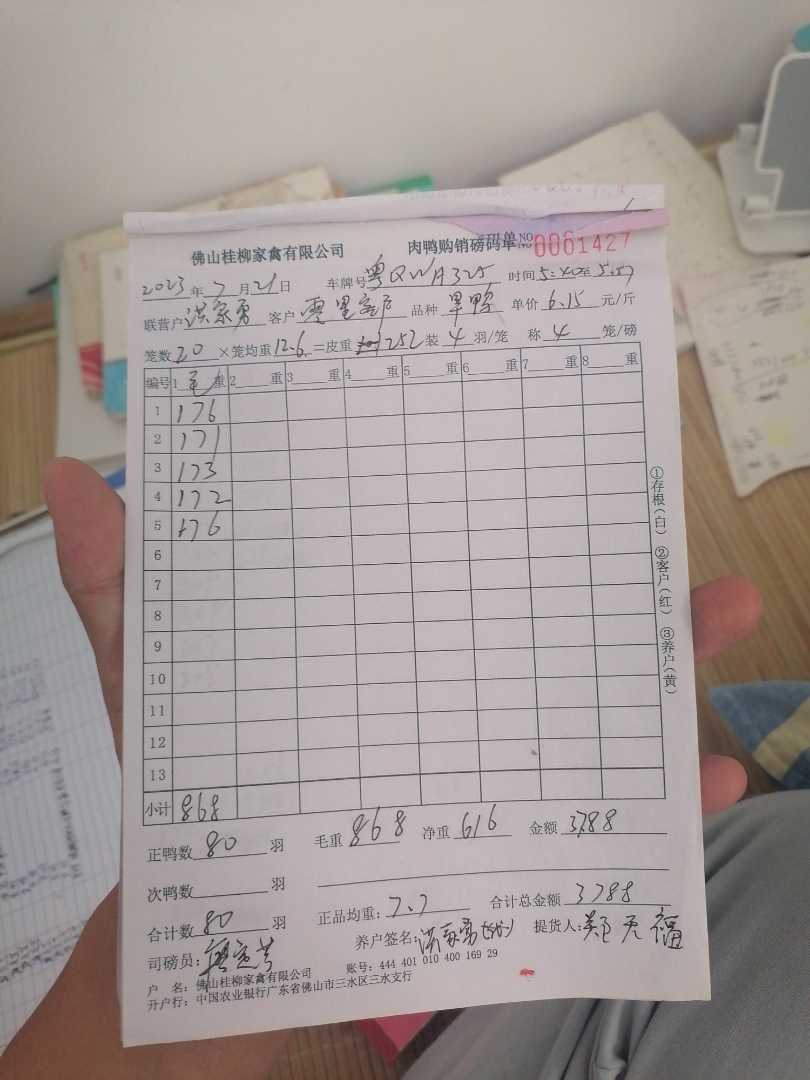 佛山桂柳家禽有限公司 肉鸭购销磅码单 NO 0061427
2023年7月21日 车牌号粤QWA325 时间5:40至5:57
联营户洪家勇 客户零星客户 品种旱鸭 单价6.15元/斤
笼数20×笼均重12.6=皮重252装4羽/笼 称4笼/磅
编号 1毛重 2重 3重 4重 5重 6重 7重 8重
1 176
2 171
3 173
4 172
5 176
6
7
8
9
10
11
12
13
小计 868
①存根(白) ②客户(红) ③养户(黄)
正鸭数80羽 毛重868 净重616 金额3788
次鸭数 羽
合计数80羽 正品均重:7.7 合计总金额3788
司磅员: 养户签名:洪家勇 提货人:
户 名:佛山桂柳家禽有限公司 账号:444 401 010 400 169 29
开户行:中国农业银行广东省佛山市三水区三水支行